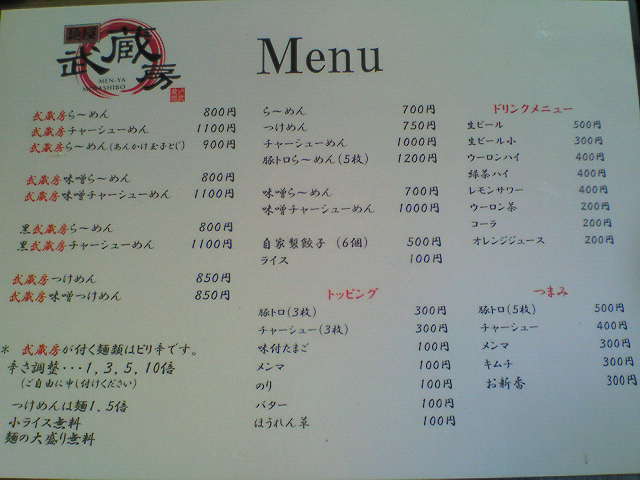 麺屋
武蔵房
MEN-YA
MUSASHIBO
Menu
武蔵房ら～めん 800円
武蔵房チャーシューめん 1100円
武蔵房ら～めん(あんかけ玉子とじ) 900円
武蔵房味噌ら～めん 800円
武蔵房味噌チャーシューめん 1100円
黒武蔵房ら～めん 800円
黒武蔵房チャーシューめん 1100円
武蔵房つけめん 850円
武蔵房味噌つけめん 850円
* 武蔵房が付く麺類はピリ辛です。
辛さ調整・・・1,3,5,10倍
(ご自由に申し付けください)
つけめんは麺1.5倍
小ライス無料
麺の大盛り無料
ら～めん 700円
つけめん 750円
チャーシューめん 1000円
豚トロら～めん(5枚) 1200円
味噌ら～めん 700円
味噌チャーシューめん 1000円
自家製餃子 (6個) 500円
ライス 100円
トッピング
豚トロ(3枚) 300円
チャーシュー(3枚) 300円
味付たまご 100円
メンマ 100円
のり 100円
バター 100円
ほうれん草 100円
ドリンクメニュー
生ビール 500円
生ビール小 300円
ウーロンハイ 400円
緑茶ハイ 400円
レモンサワー 400円
ウーロン茶 200円
コーラ 200円
オレンジジュース 200円
つまみ
豚トロ(5枚) 500円
チャーシュー 400円
メンマ 300円
キムチ 300円
お新香 300円